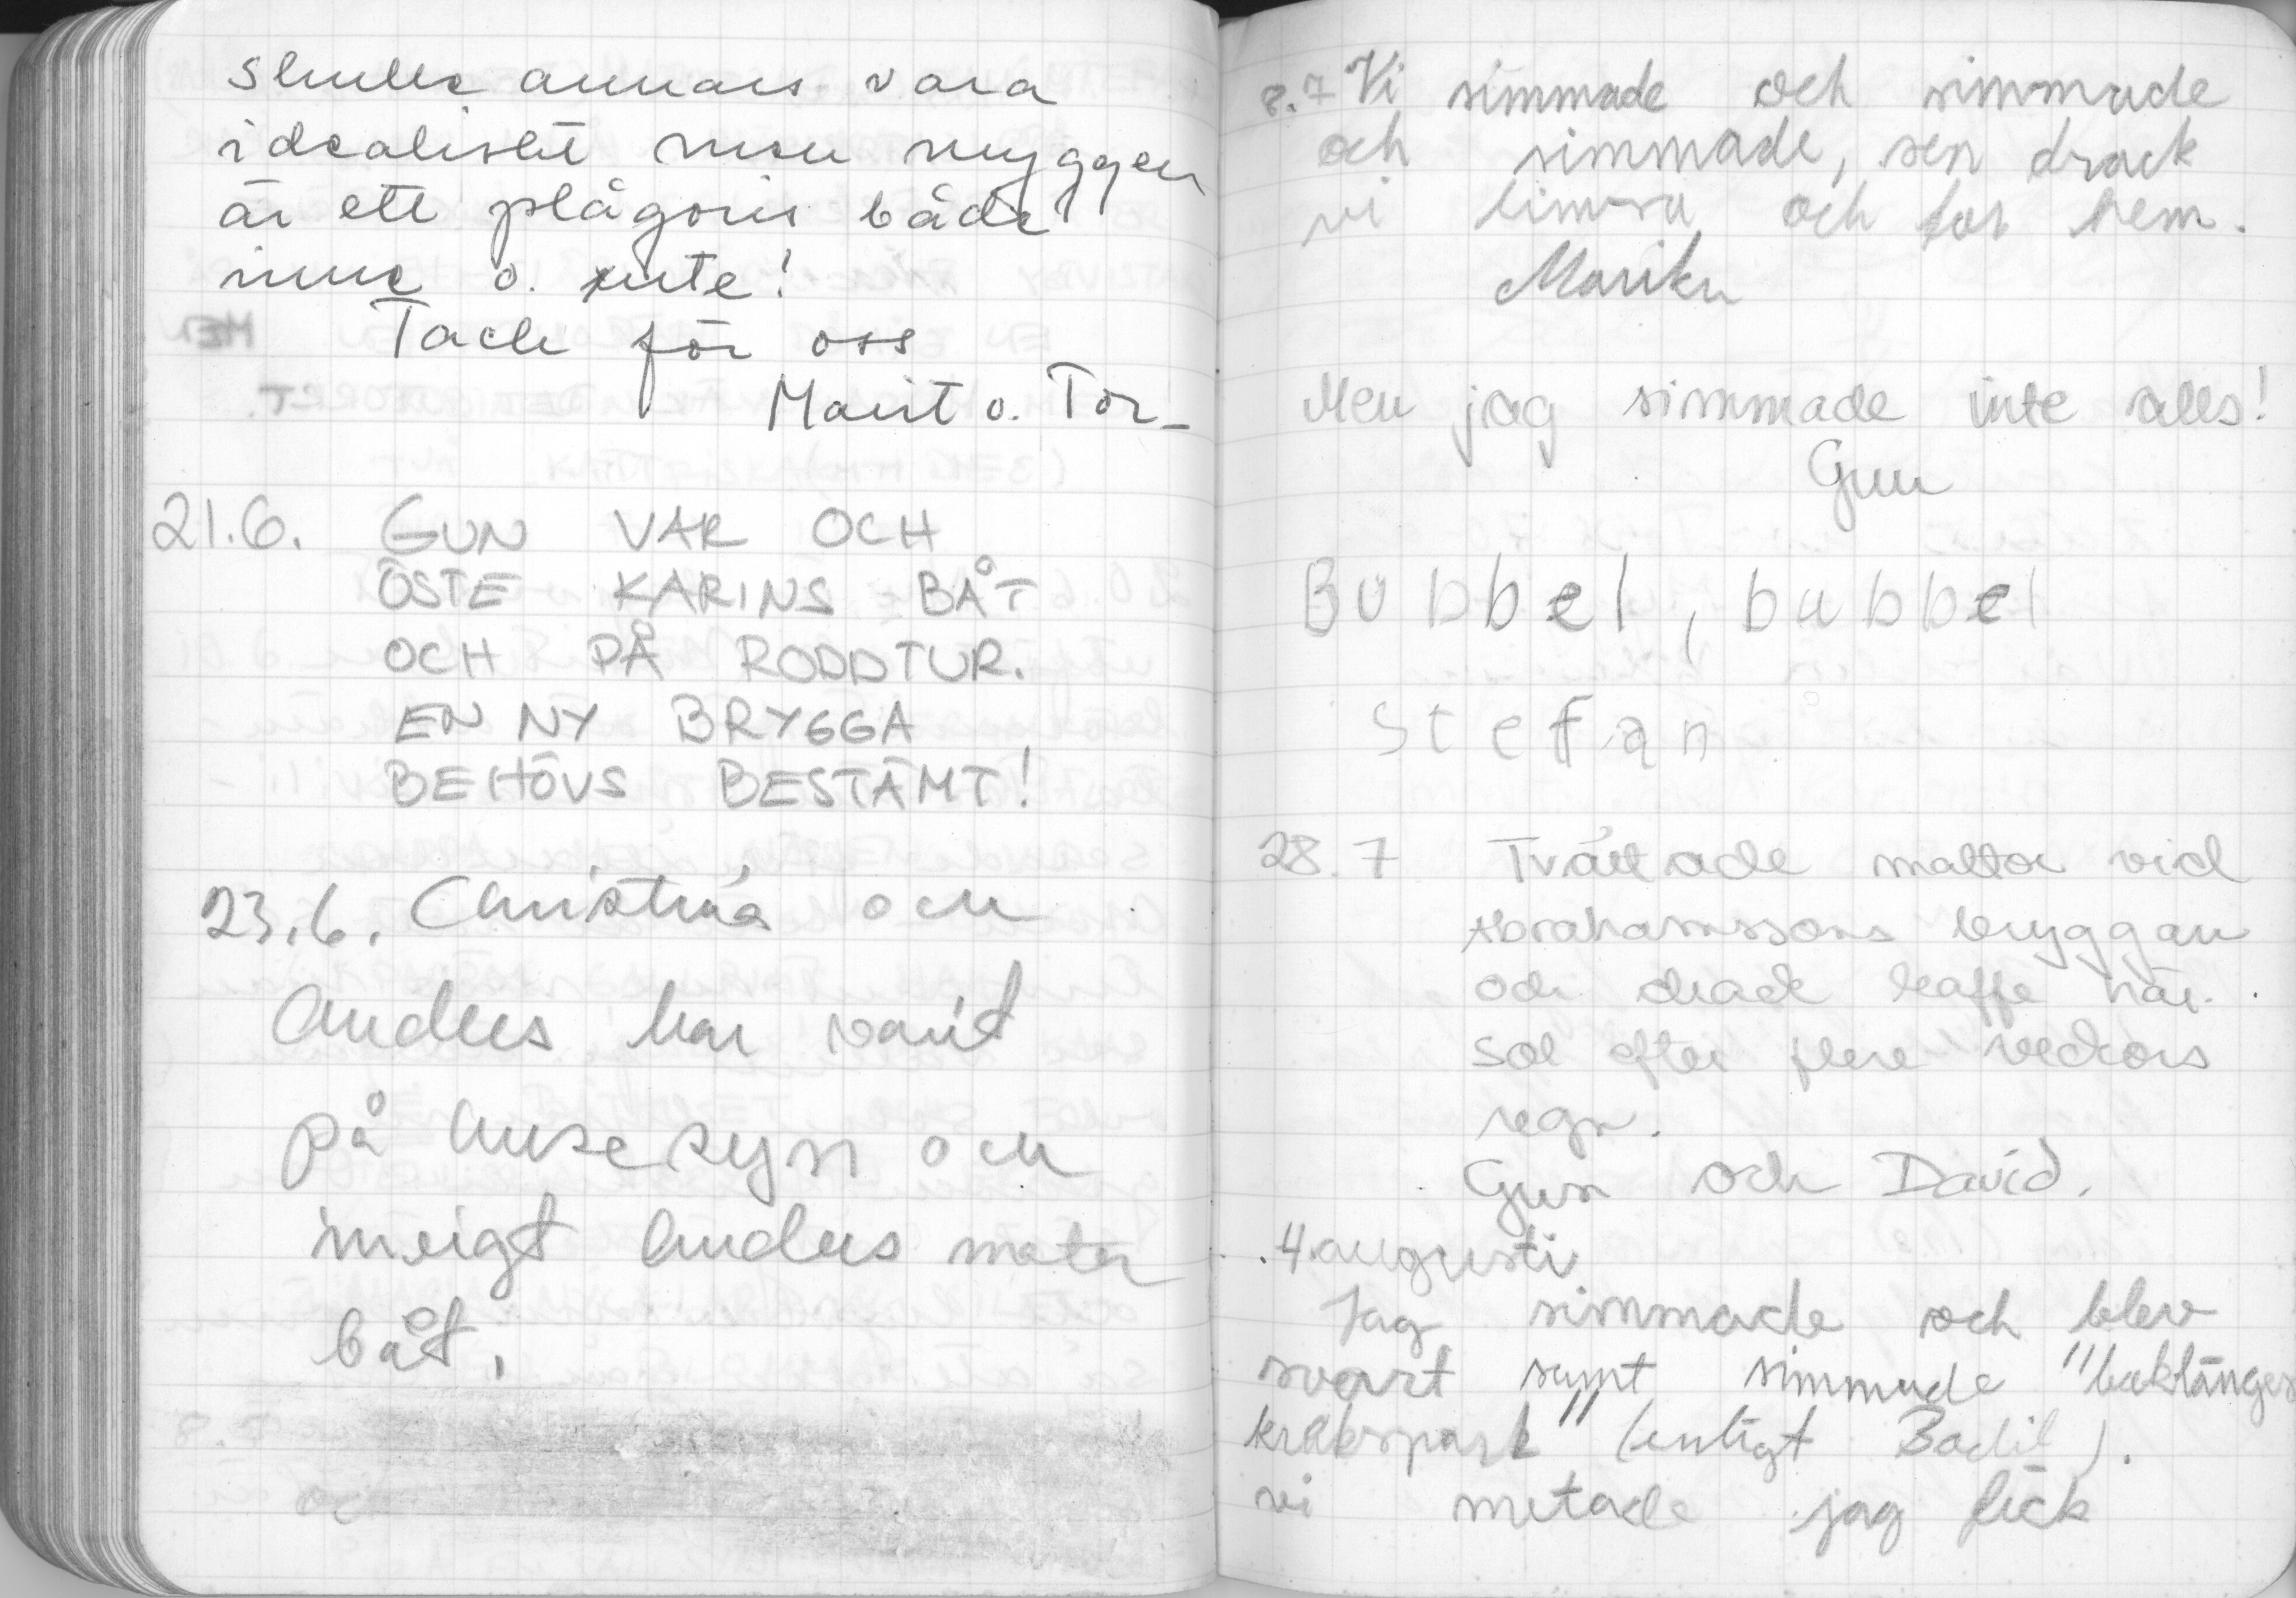 skulle annars vara
idealiskt men myggen
är ett plågoris både
inne o. ute!
Tack för oss
Marit o. Tor-
21.6. GUN VAR OCH
ÖSTE KARINS BÅT
OCH PÅ RODDTUR.
EN NY BRYGGA
BEHÖVS BESTÄMT!
23.6. Christina och
Anders har varit
på husesyn och
invigt Anders mete
båt.
8.7 Vi simmade och simmade
och simmade, sen drack
vi limsa och for hem.
Marika
Men jag simmade inte alls!
Gun
Bubbel, bubbel
Stefan
28.7 Tvättade mattor vid
Abrahamssons bryggan
och drack kaffe här.
Sol efter flere veckors
regn.
Gun och David.
4 augusti
Jag simmade och blev
svart samt simmade "baklänges
krabspark" (enligt Bodil).
vi metade jag fick